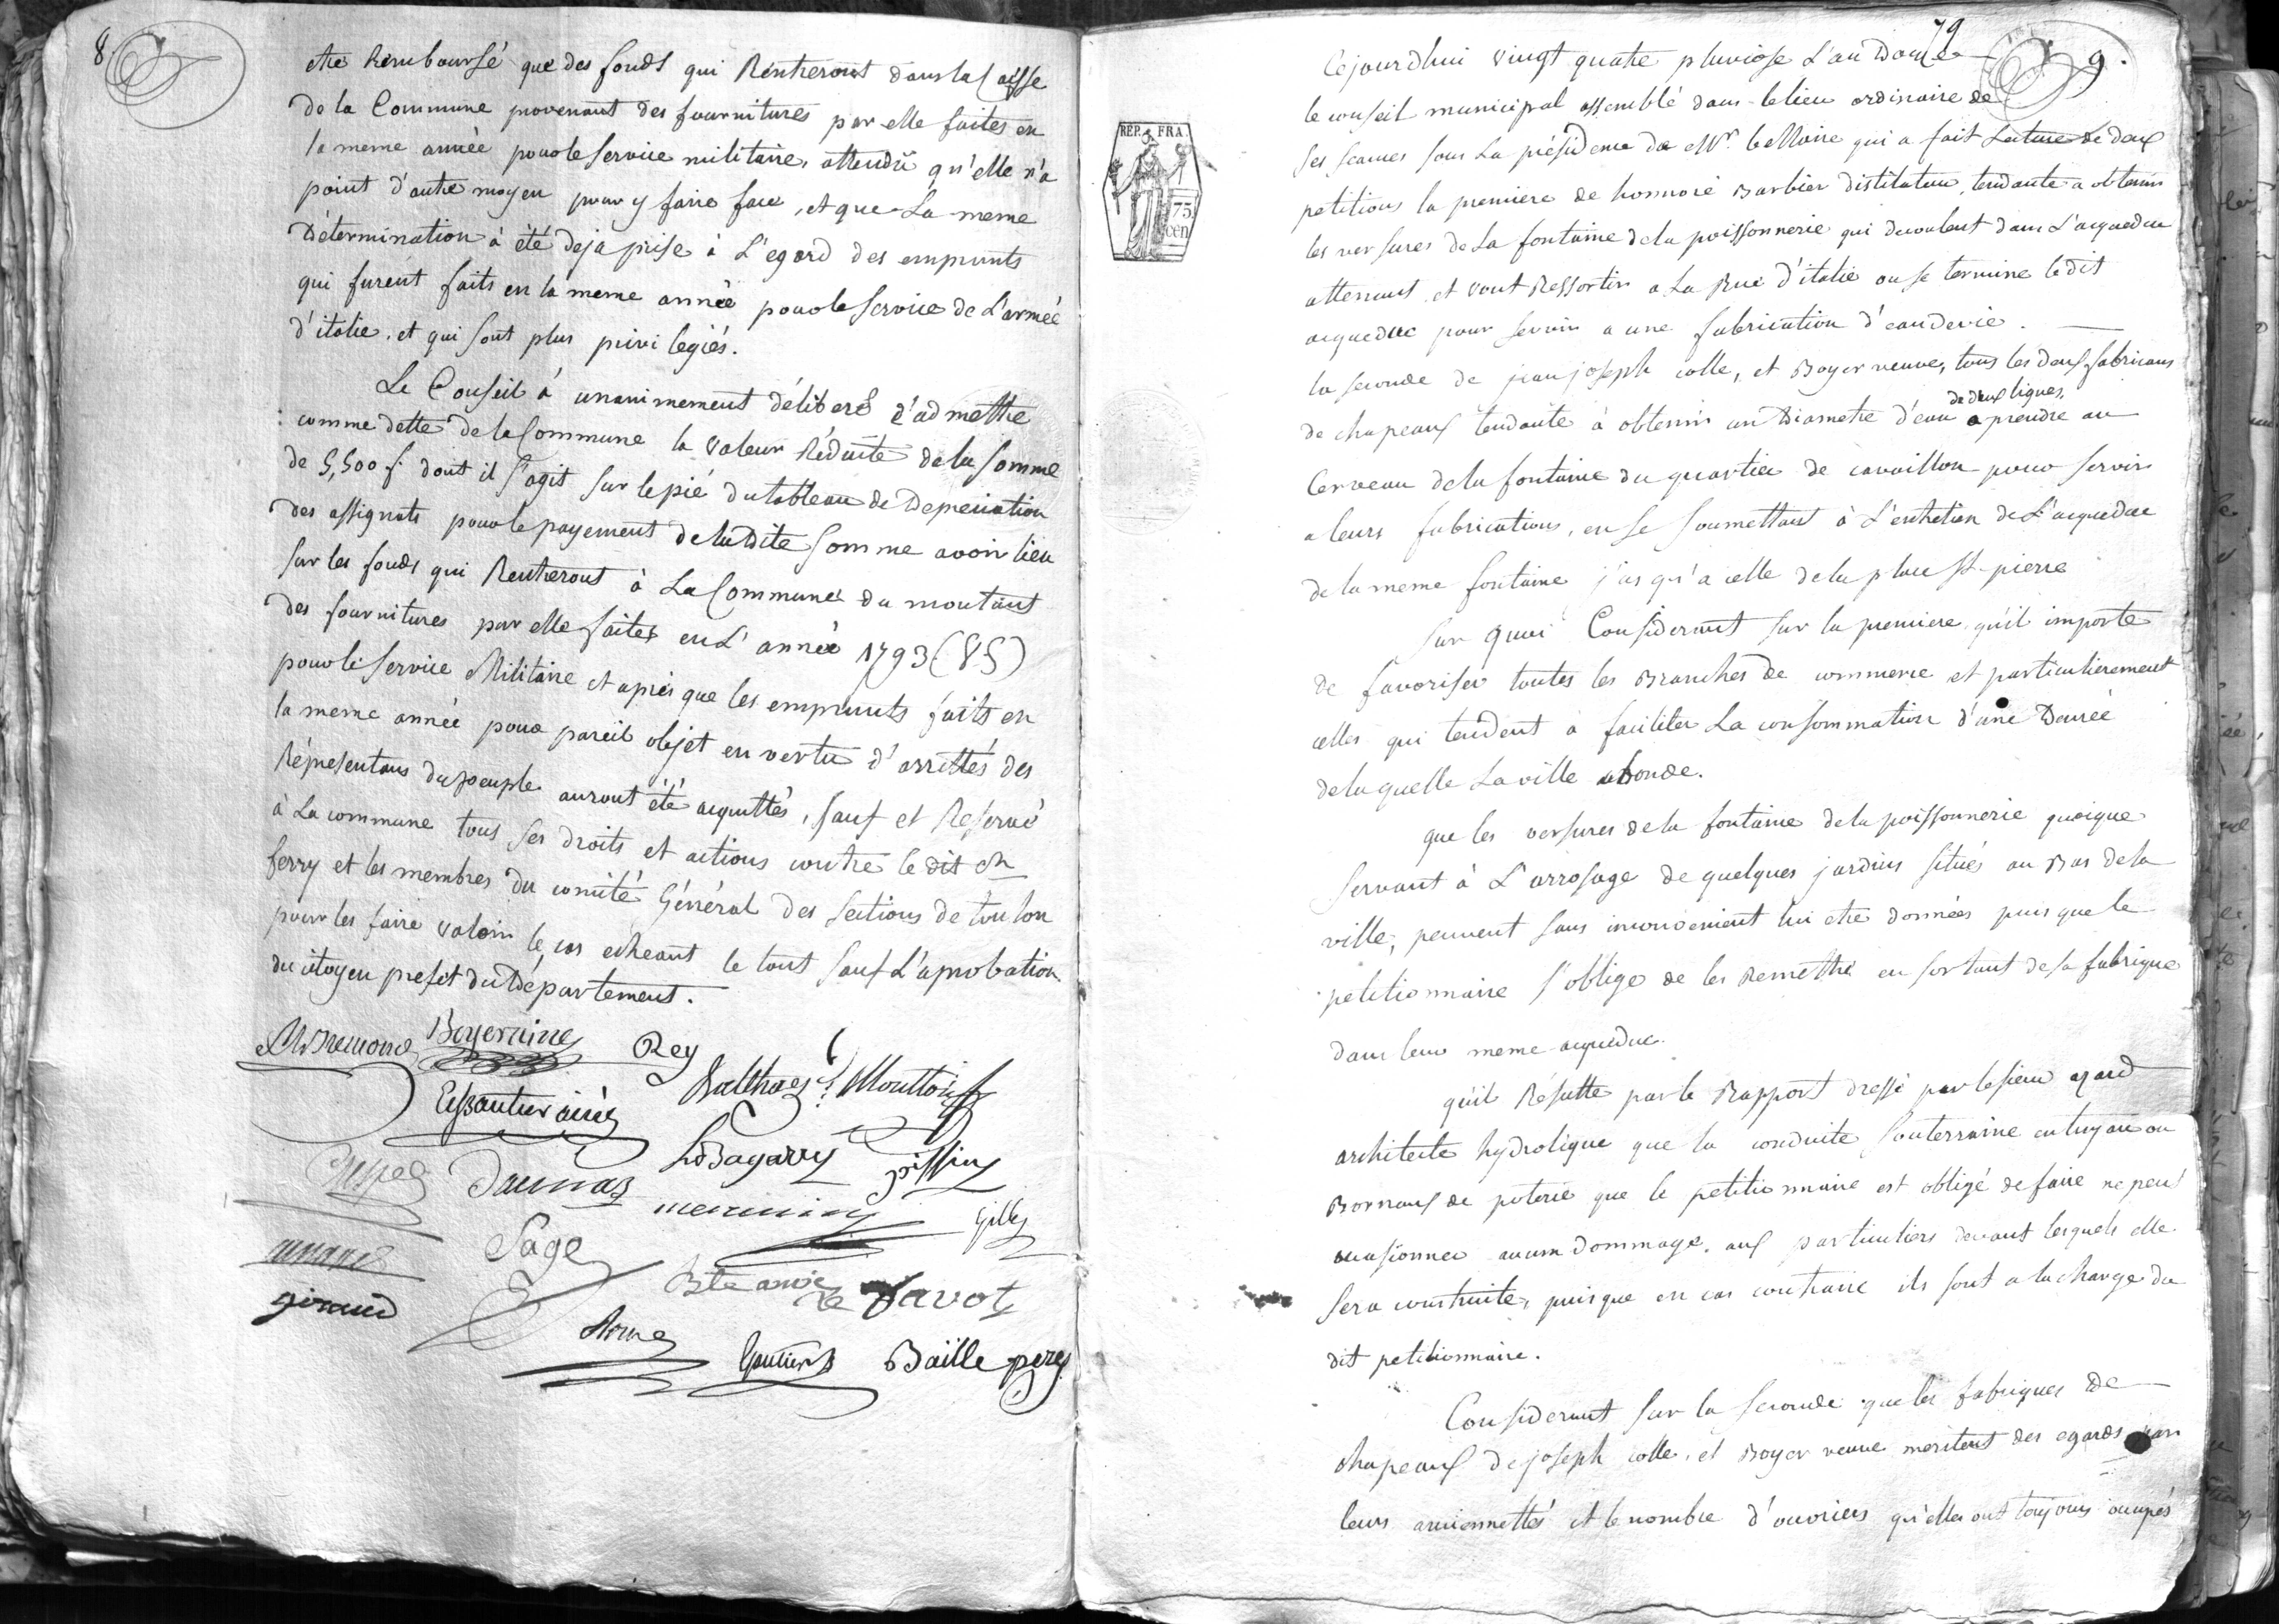 8
etre Remboursé que des fonds qui Rentreront dans la Caisse
de la Commune provenant des fournitures par elle faites en
la meme année pour le service militaire, attendu qu'elle n'a
point d'autre moyen pour y faire face, et que La meme
Détermination à été deja prise à L'egard des emprunts
qui furent faits en la meme année pour le service de L'armée
d'italie, et qui sont plus privilegiés.
Le Conseil à unanimement déliberé d'admettre
comme dette de la Commune la valeur Réduite de la somme
de 5,500 f. dont il s'agit sur le pié du tableau de Depreciation
des assignats pour le payement de la dite somme avoir lieu
sur les fonds qui Rentreront à La Commune du montant
des fournitures par elle faites en L'année 1793 (VS)
pour le service Militaire et après que les emprunts faits en
la meme année pour pareil objet en vertu d'arrettés des
Répresentans du peuple auront été acquittés, sauf et Reservé
à La commune tous ses droits et actions contre le dit
ferry et les membres du comité Général des sections de toulon
pour les faire valoir le cas echeant le tout sauf L'aprobation
du citoyen prefet du Département.
Boyer Rey
Balthazar Moutton
Gautier ainé
Daumas LBagarry pissin
Sage Gilly
giraud
Savot
Gautier Baille pere
79
9.
Cejourdhui vingt quatre pluviose L'an Douze
le conseil municipal assemblé dans le lieu ordinaire de
ses seances sous La présidence de Mr. le Maire qui a fait Lecture de deux
petitions la premiere de honnoré Barbier distilateur, tendante a obtenir
les versures de La fontaine de la poissonnerie qui decoulent dans L'acqueduc
attenant et vont Ressortir a La Rue d'italie ou se termine le dit
acqueduc pour servir a une fabrication d'eau de vie.
la seconde de jean joseph colle, et Boyer veuve, tous les deux fabricans
de deux lignes,
de chapeaux tendante à obtenir un Diametre d'eau a prendre au
Cerveau de la fontaine du quartier de cavaillon pour servir
a leurs fabrications, en se soumettant à L'entretien de L'acqueduc
de la meme fontaine j'usqu'a celle de la place St. pierre
Sur quoi Considerant sur la premiere qu'il importe
de favoriser toutes les Branches de commerce et particulierement
celles qui tendent a faciliter La consommation d'une Denrée
de laquelle La ville abonde.
que les versures de la fontaine de la poissonnerie quoique
servant à L'arrosage de quelques jardins situés au Bas de la
ville, peuvent sans inconvenient lui etre données puisque le
petitionnaire s'oblige de les Remettre en sortant de sa fabrique
dans leur meme acqueduc.
qu'il Résulte par le Rapport dressé par le sieur
architecte hydrolique que la conduite souterraine en tuyau ou
Bornaux de poterie que le petitionnaire est obligé de faire ne peut
occasionner aucun dommage, aux particuliers devant lesquels elle
sera construite, puisque en cas contraire ils sont a la charge du
dit petitionnaire.
Considerant sur la seconde que les fabriques de
chapeaux de joseph colle, et Boyer veuve meritent des egards par
leurs anciennettés et le nombre d'ouvriers qu'elles ont toujours occupés
REP. FRA.
75
cen